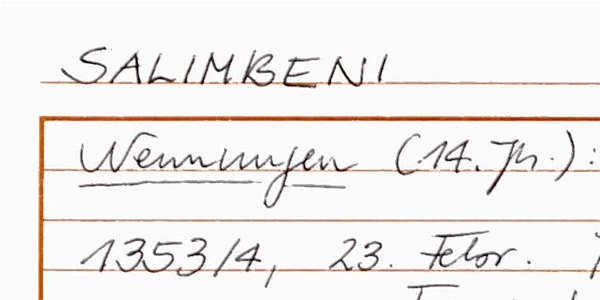 SALIMBENI
Nennungen (14. Jh.):
1353/4, 23. Febr.